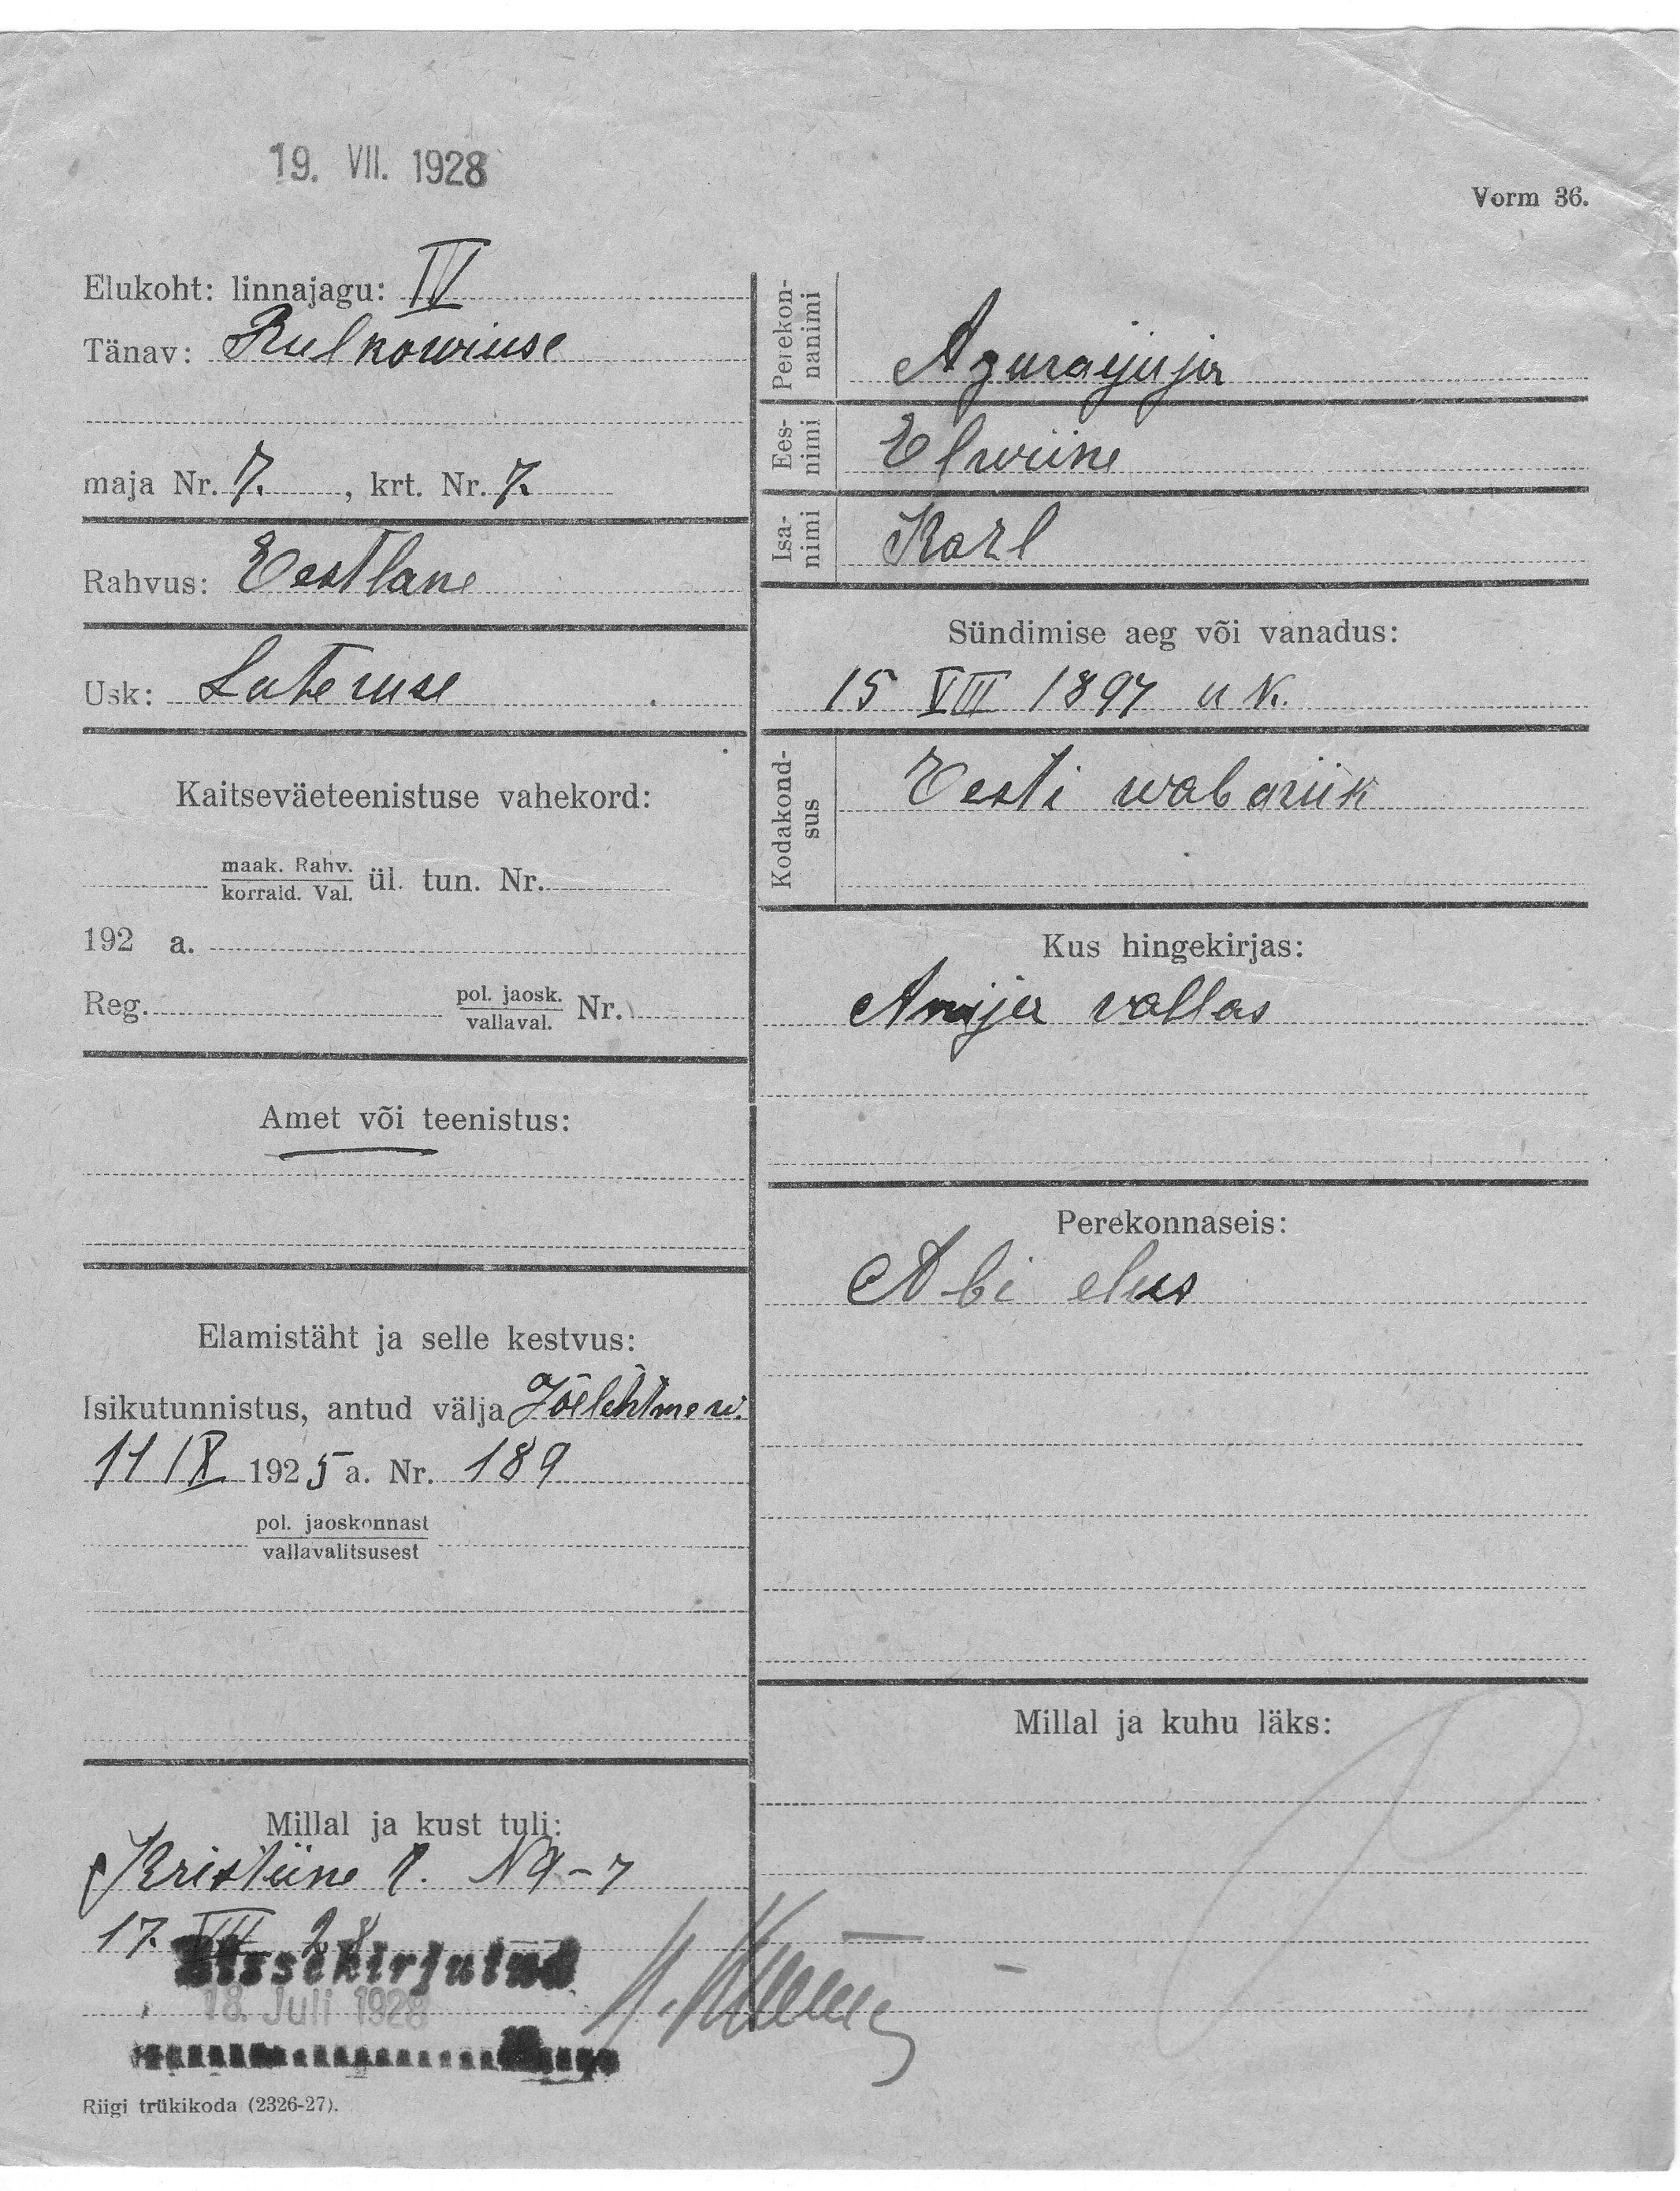 19. VII. 1928
Vorm 36.
Elukoht: linnajagu: IV
Tänav: Rulkowiuse
maja Nr. 7. , krt. Nr. 7.
Rahvus: Eestlane
Usk: Luteruse
Kaitseväeteenistuse vahekord:
maak. Rahv.
korrald. Val.
ül. tun. Nr.
192 a.
Reg. pol. jaosk. Nr.
vallaval.
Amet või teenistus:
Elamistäht ja selle kestvus:
Isikutunnistus, antud välja Jõelehtme w.
11 IX 1925 a. Nr. 189
pol. jaoskonnast
vallavalitsusest
Millal ja kust tuli:
Kristiine
17. VII 28
Sissekirjutud
18. Juli 1928
Riigi trükikoda (2326-27).
Perekon-
nanimi
Ees-
nimi
Elwiine
Isa-
nimi
Karl
Sündimise aeg või vanadus:
15 VIII 1897 u k.
Kodakond-
sus
Eesti wabariik
Kus hingekirjas:
Anija vallas
Perekonnaseis:
Abi elus
Millal ja kuhu läks: